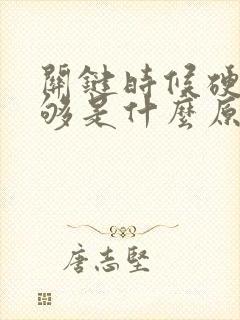 關鍵時候硬
够是什麼原
唐志堅